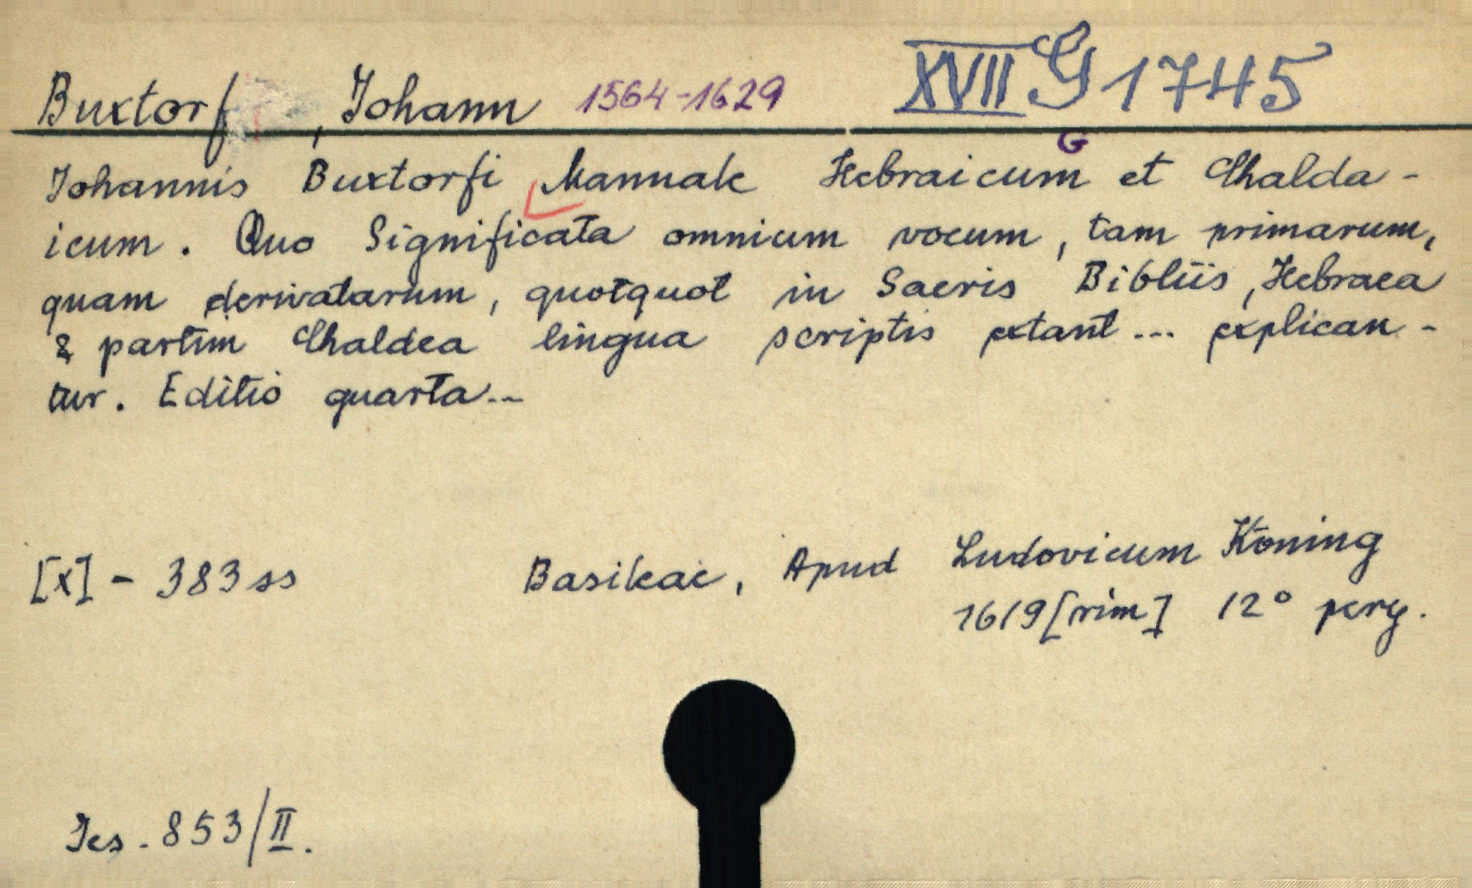 Buxtorf, Johann 1564-1629 XVII G 1745
G
Johannis Buxtorfi Manuale Hebraicum et Chalda-
icum. Quo Significata omnium vocum, tam primarum,
quam derivatarum, quotquot in Sacris Bibliis, Hebraea
& partim Chaldea lingua scriptis extant... explican-
tur. Editio quarta...
[x] - 383 ss Basileae, Apud Ludovicum König
1619 [rim] 12° perg.
Ies. 853/II.